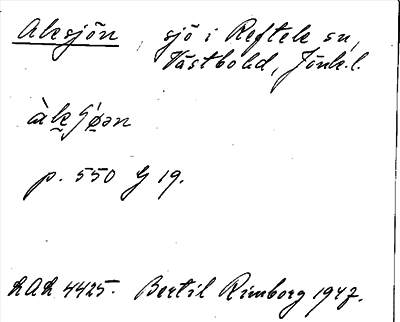 Aksjön, sjö i Reftele sn,
Västbo hd, Jönk.l.
p. 550 G 19.
LAL 4425. Bertil Rimborg 1947.